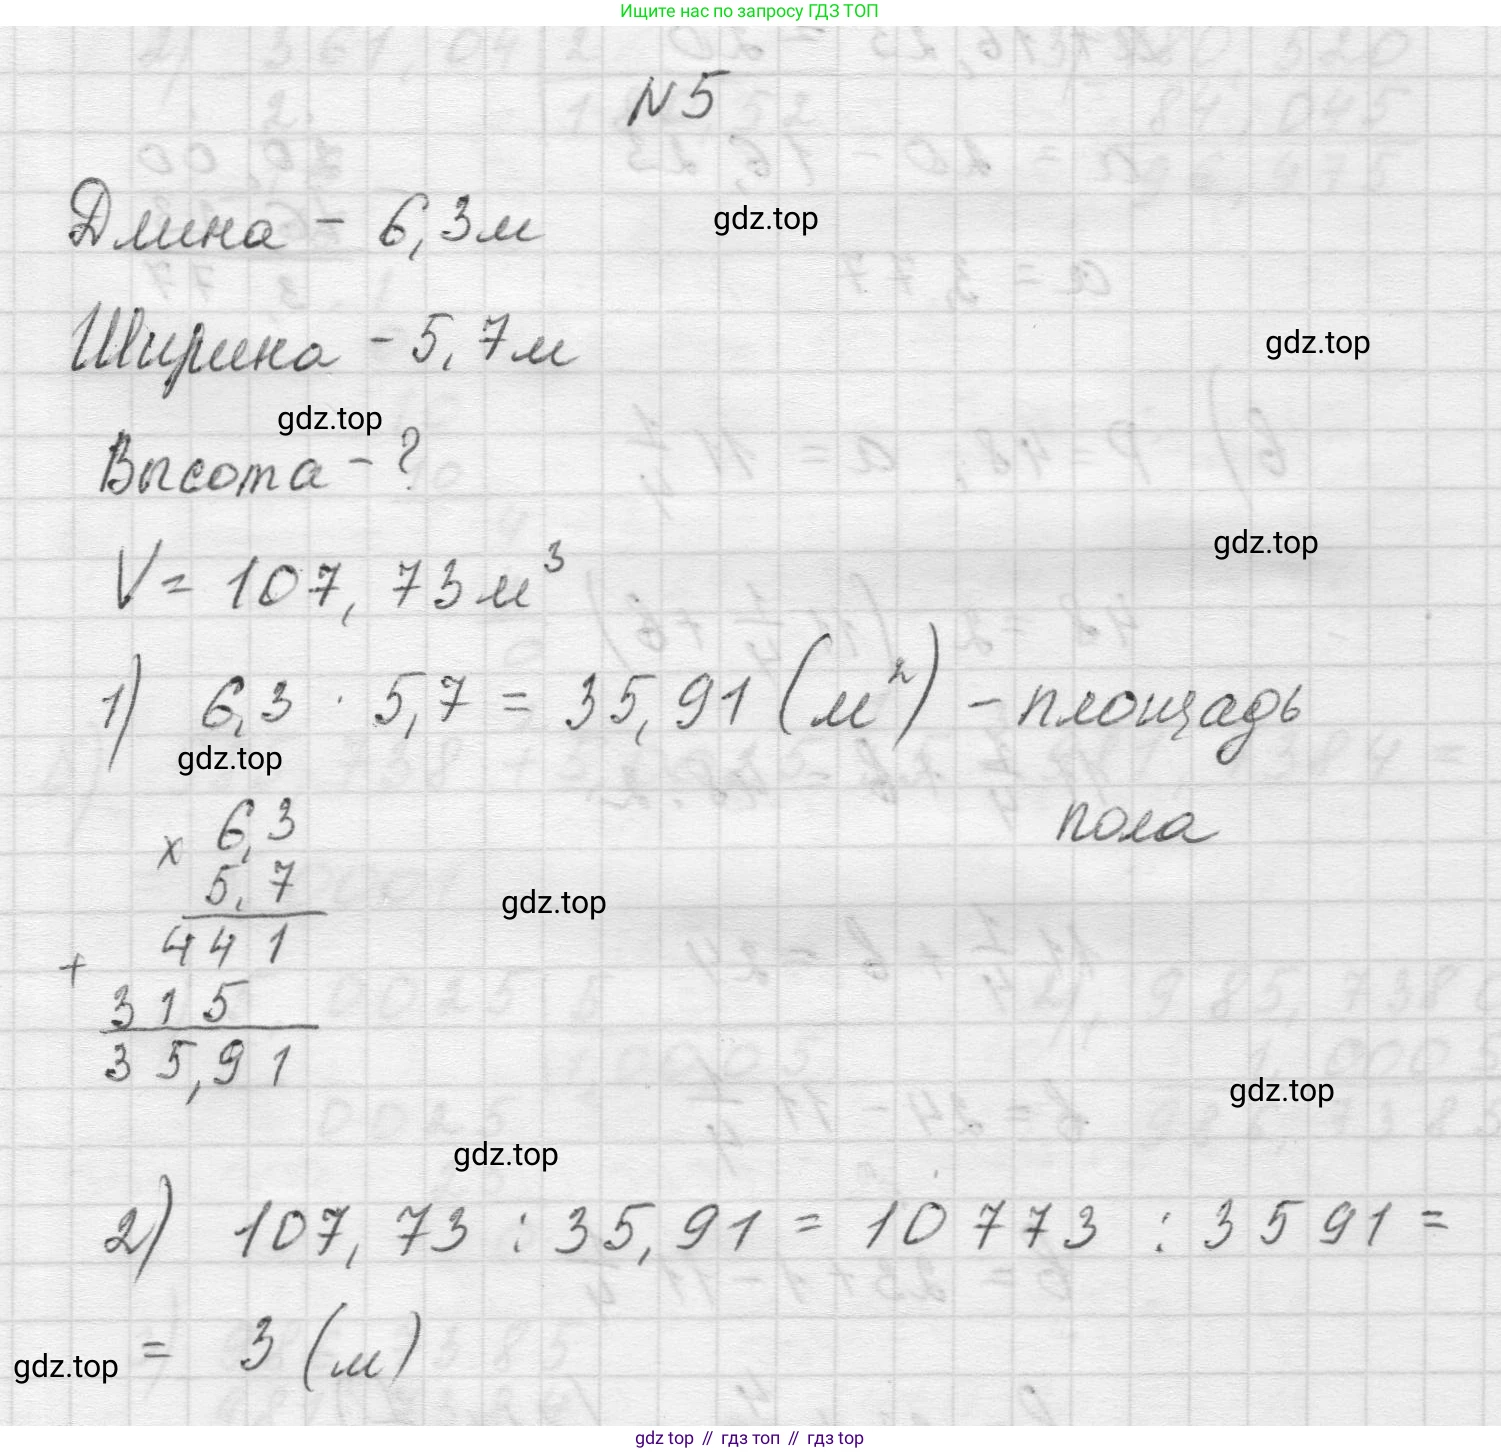 Ищите нас по запросу ГДЗ ТОП
N 5
Длина - 6,3 м
gdz.top
Ширина - 5,7 м
gdz.top
gdz.top
Высота - ?
gdz.top
V = 107,73 м³
1) 6,3 · 5,7 = 35,91 (м²) - площадь
gdz.top
пола
x 6,3
5,7
gdz.top
441
+
315
35,91
gdz.top
gdz.top
2) 107,73 : 35,91 = 10773 : 3591 =
= 3 (м)
gdz.top
gdz top // гдз топ // гдз top